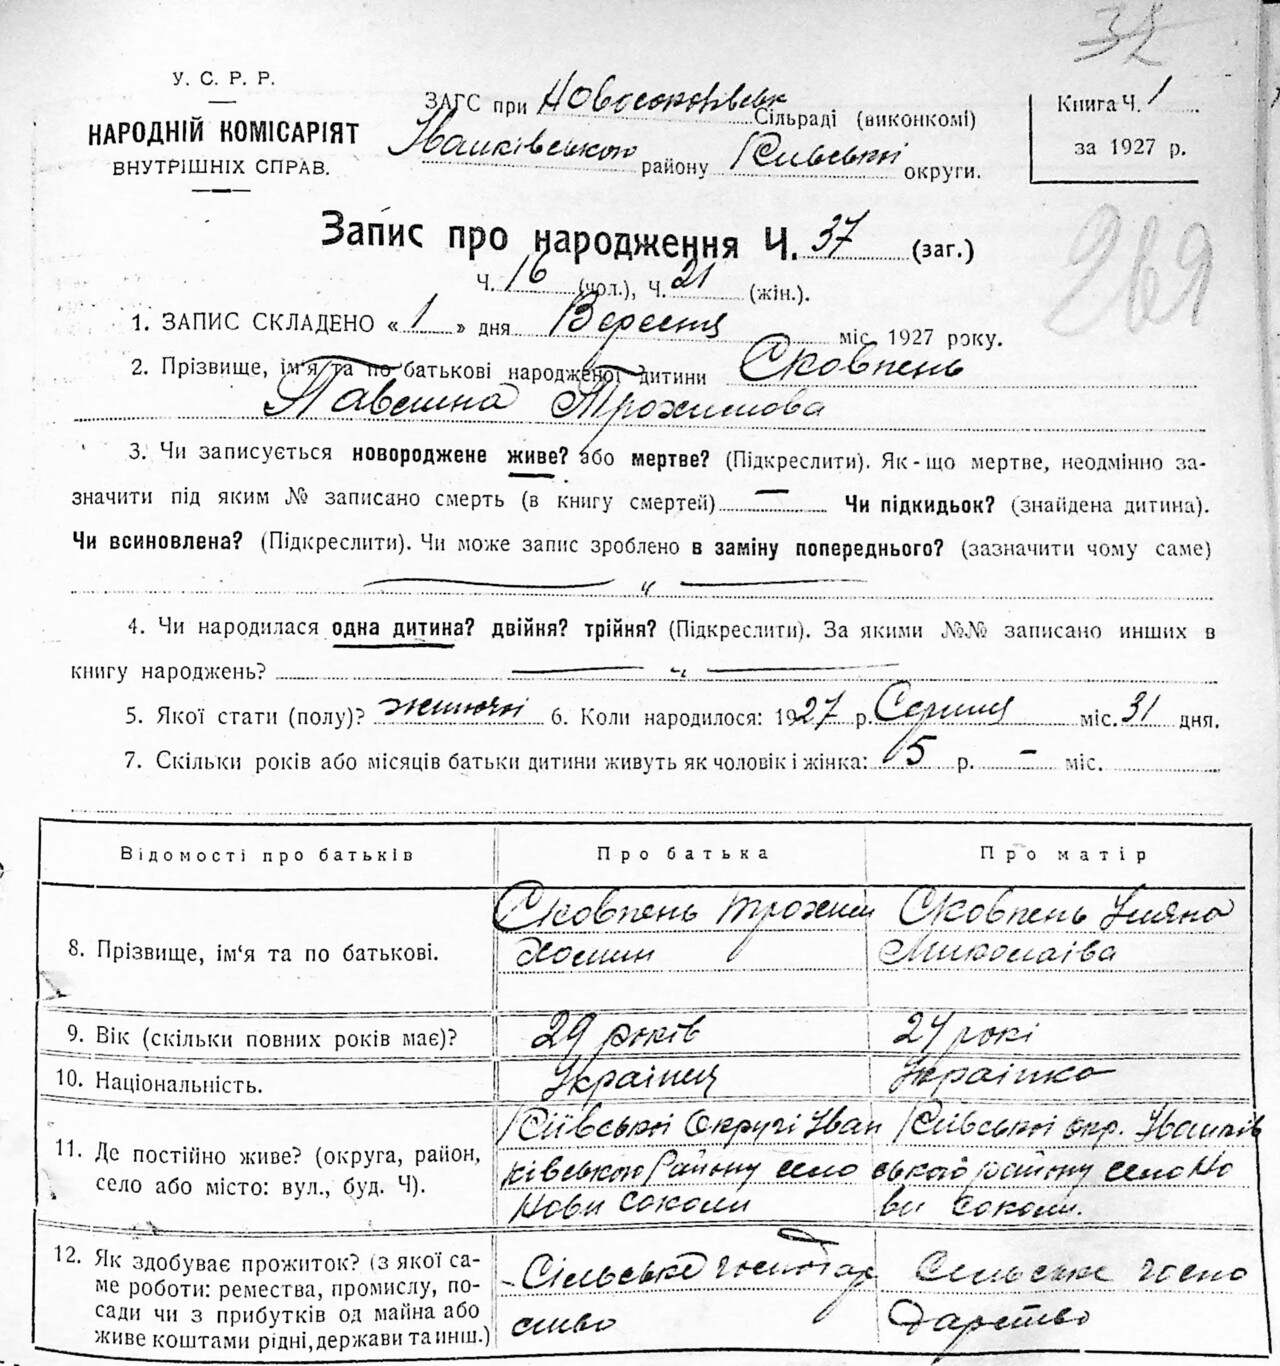 32
У. С. Р. Р.
НАРОДНІЙ КОМІСАРІЯТ
ВНУТРІШНІХ СПРАВ.
ЗАГС при Новосоколівськ Сільраді (виконкомі)
Іванківського району Київської округи.
Книга Ч. 1
за 1927 р.
269
Запис про народження Ч. 37 (заг.)
Ч. 16 (чол.), Ч. 21 (жін.).
1. ЗАПИС СКЛАДЕНО « 1 » дня Вересня міс. 1927 року.
2. Прізвище, ім'я та по батькові народженої дитини Сковпень
Павлина Трохимова
3. Чи записується новороджене живе? або мертве? (Підкреслити). Як-що мертве, неодмінно за-
значити під яким № записано смерть (в книгу смертей) — Чи підкидьок? (знайдена дитина).
Чи всиновлена? (Підкреслити). Чи може запис зроблено в заміну попереднього? (зазначити чому саме)
4. Чи народилася одна дитина? двійня? трійня? (Підкреслити). За якими №№ записано инших в
книгу народжень?
5. Якої стати (полу)? жиночі 6. Коли народилося: 1927 р. Серпня міс. 31 дня.
7. Скільки років або місяців батьки дитини живуть як чоловік і жінка: 5 р. – міс.
Відомості про батьків Про батька Про матір
8. Прізвище, ім'я та по батькові.
Сковпень Трохим
Хомин
Сковпень Уляна
Миколаіва
9. Вік (скільки повних років має)? 29 років 24 рокі
10. Національність. Українця Українка
11. Де постійно живе? (округа, район,
село або місто: вул., буд. Ч).
Київські Округі Іван
ківського Району село
Нови соколи
Київські окр. Іванків
ського району село Но
ви соколи.
12. Як здобуває прожиток? (з якої са-
ме роботи: ремества, промислу, по-
сади чи з прибутків од майна або
живе коштами рідні, держави та инш.)
Сільське господар
ство
Сельське госпо
дарство